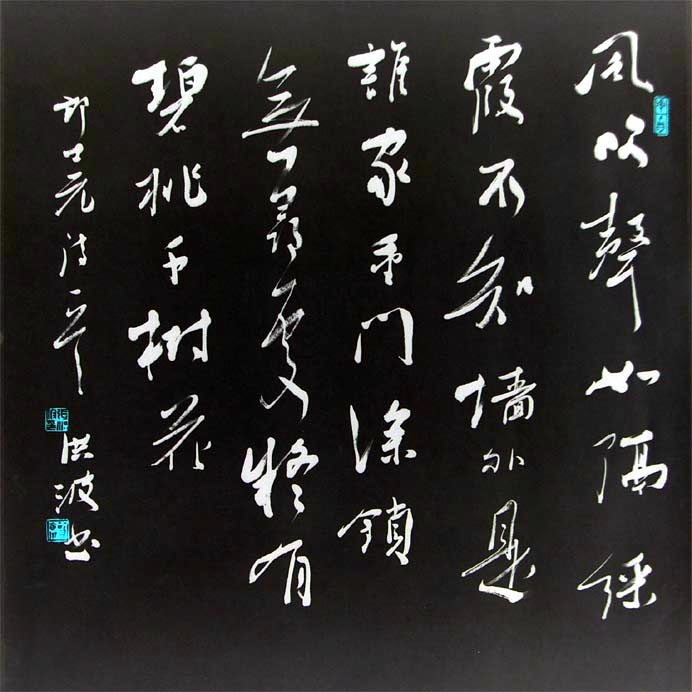 鳳吹聲如隔綵
霞不知墙外是
誰家重門深鎖
無尋處疑有
碧桃千樹花
郎士元诗 洪波书